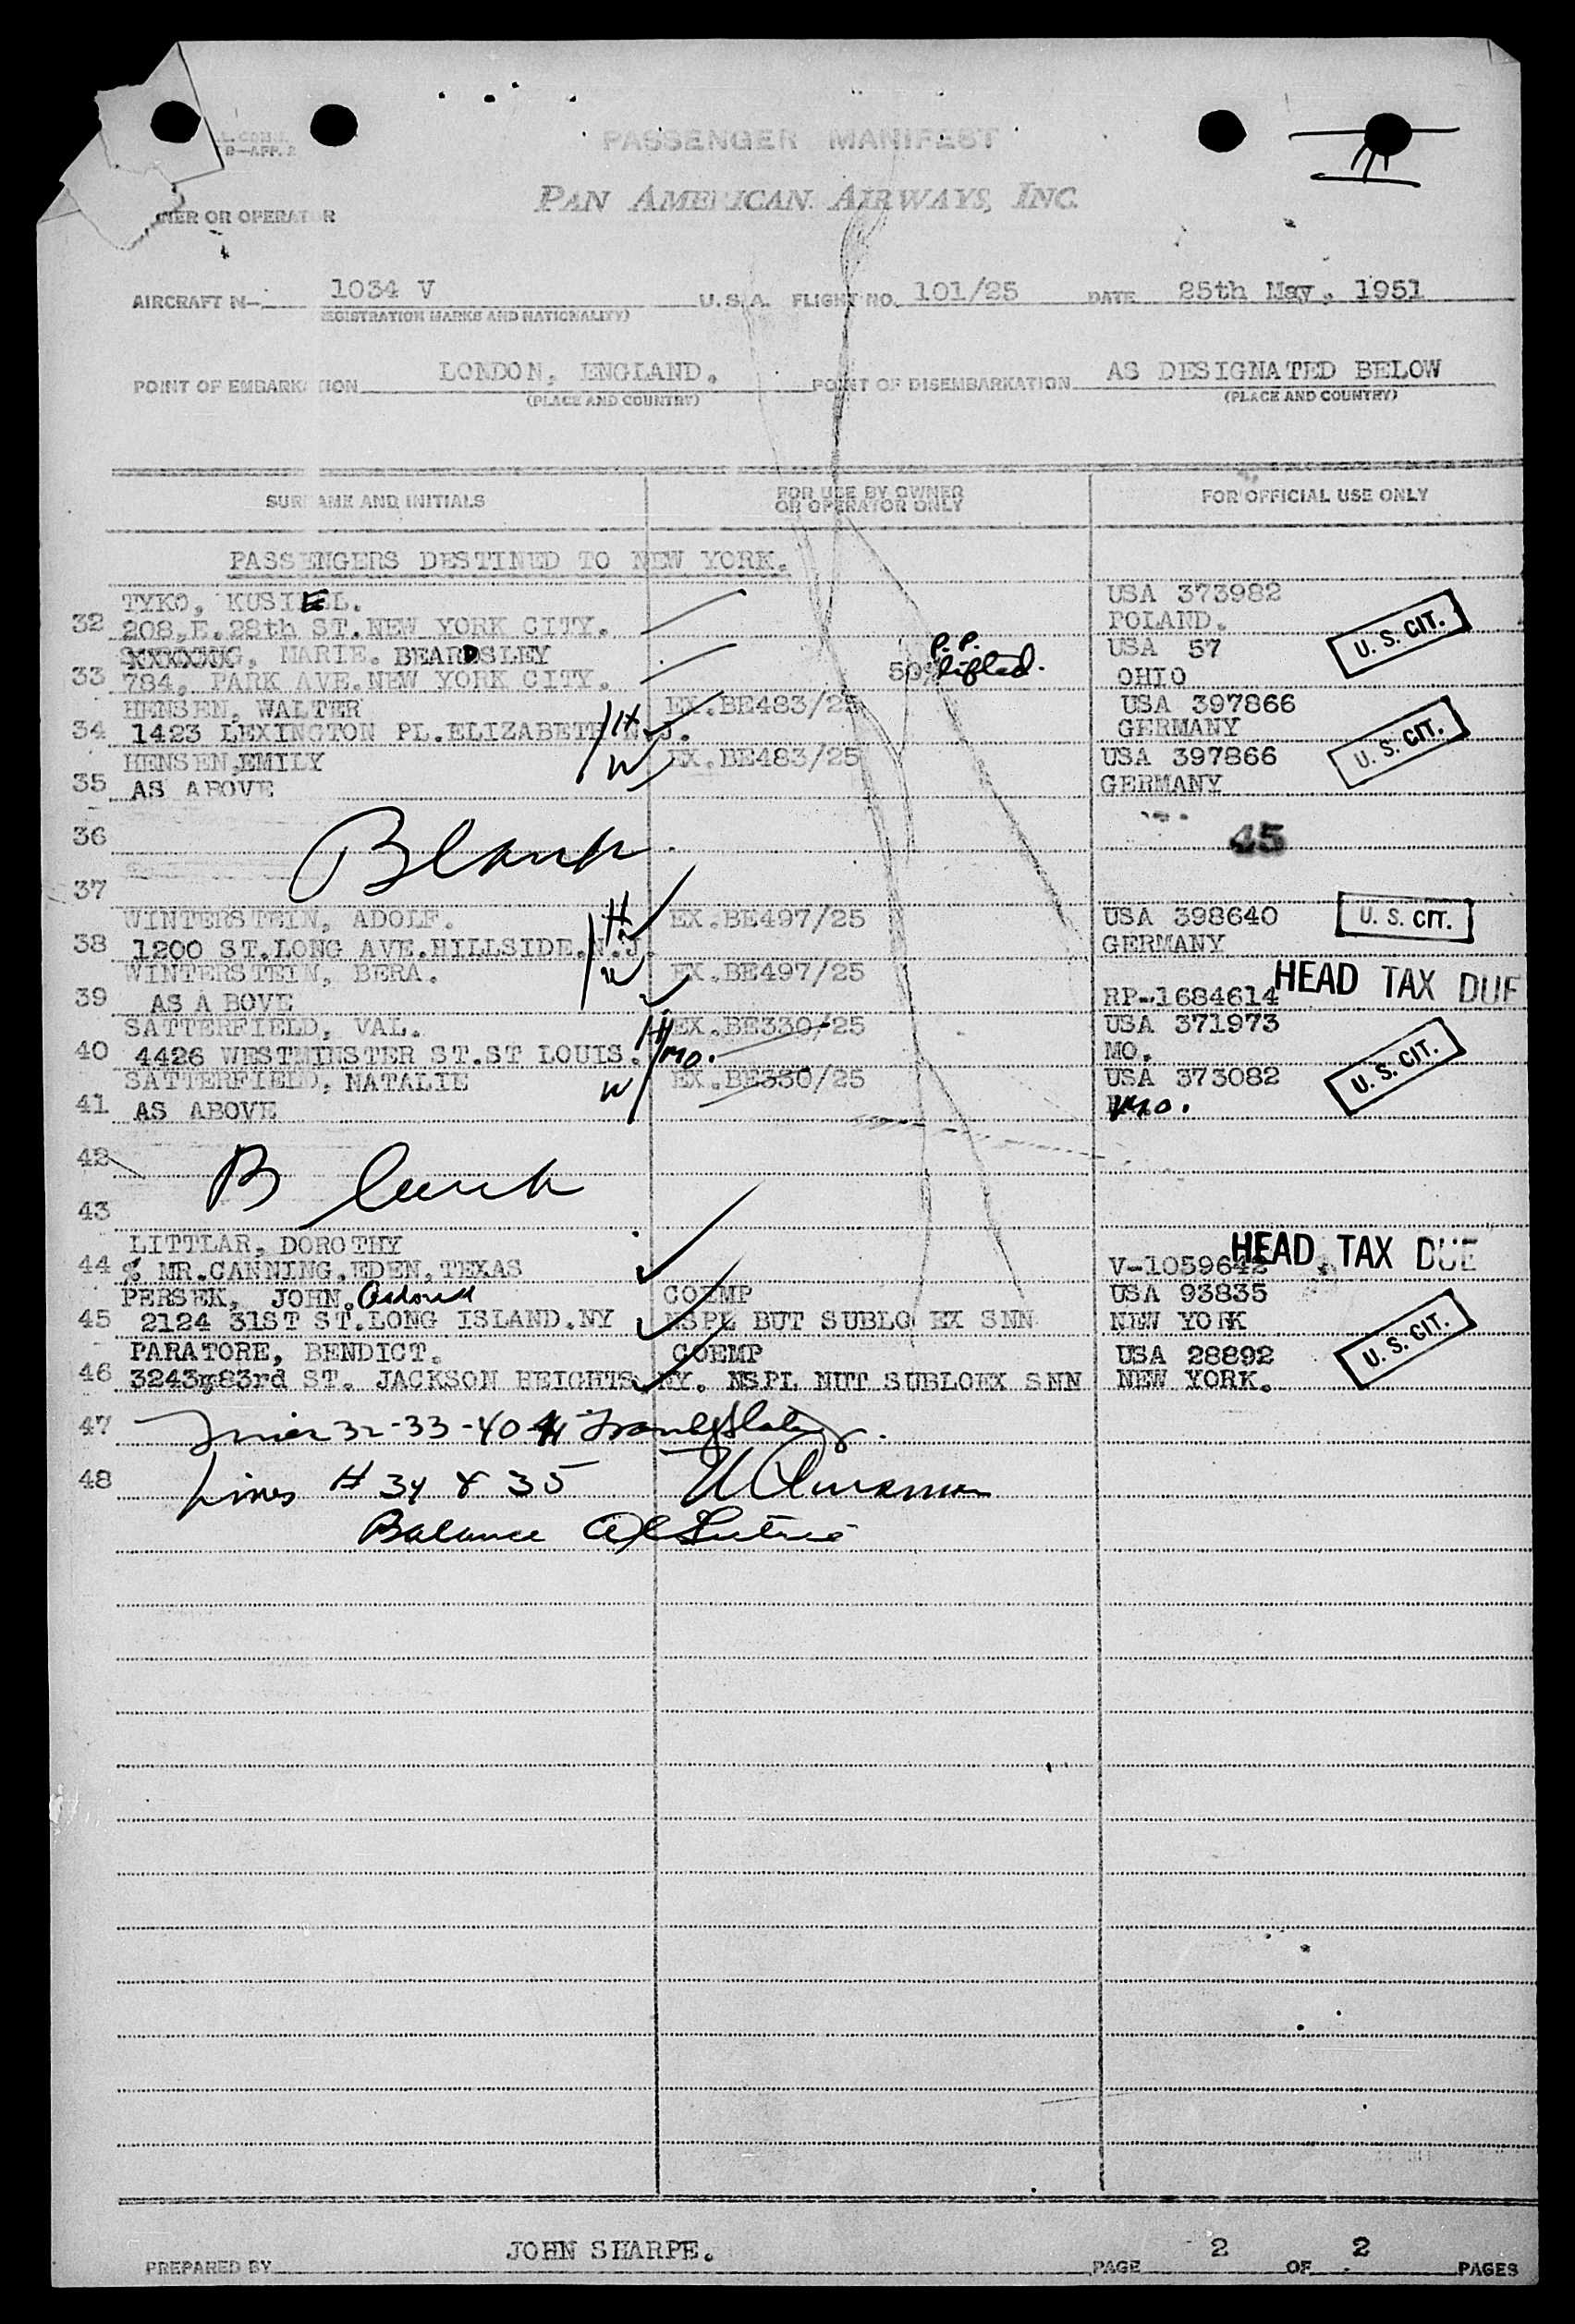 PASSENGER MANIFEST
PAN AMERICAN AIRWAYS, INC.
OR OPERATOR
AIRCRAFT N-. 1034 V U.S.A. FLIGHT NO. 101/25 DATE 25th May, 1951
(REGISTRATION MARKS AND NATIONALITY)
POINT OF EMBARKATION LONDON, ENGLAND. POINT OF DISEMBARKATION AS DESIGNATED BELOW
(PLACE AND COUNTRY) (PLACE AND COUNTRY)
SURNAME AND INITIALS FOR USE BY OWNER OR OPERATOR ONLY FOR OFFICIAL USE ONLY
PASSENGERS DESTINED TO NEW YORK.
TYKO, KUSIEL. USA 373982
32 208,E.28th ST.NEW YORK CITY. POLAND. U. S. CIT.
MARIE. BEARDSLEY P.P. lifted. USA 57
33 784, PARK AVE.NEW YORK CITY. OHIO
HENSEN, WALTER H EX.BE483/25 USA 397866
34 1423 LEXINGTON PL.ELIZABETH N.J. GERMANY U. S. CIT.
HENSEN,EMILY W EX.BE483/25 USA 397866
35 AS ABOVE GERMANY
36 Blank. 45
37
WINTERSTEIN, ADOLF. H EX.BE497/25 USA 398640 U. S. CIT.
38 1200 ST.LONG AVE.HILLSIDE.N.J. GERMANY
WINTERSTEIN, BERA. W EX.BE497/25 HEAD TAX DUE
39 AS A BOVE RP-1684614
SATTERFIELD, VAL. H EX.BE330/25 USA 371973
40 4426 WESTMINSTER ST.ST LOUIS. Mo. MO. U. S. CIT.
SATTERFIELD, NATALIE W EX.BE330/25 USA 373082
41 AS ABOVE Mo.
42 Blank
43
LITTLAR, DOROTHY HEAD TAX DUE
44 % MR.CANNING,EDEN,TEXAS V-1059642
PERSEK, JOHN. COEMP USA 93835
45 2124 31ST ST.LONG ISLAND.NY NSPL BUT SUBLO EX SNN NEW YORK U. S. CIT.
PARATORE, BENDICT. COEMP USA 28892
46 3243,83rd ST. JACKSON HEIGHTS NY. NSPL NUT SUBLOEX SNN NEW YORK.
47 Lines 32-33-40-41
48 Lines # 34 & 35
Balance
JOHN SHARPE.
PREPARED BY PAGE 2 OF 2 PAGES